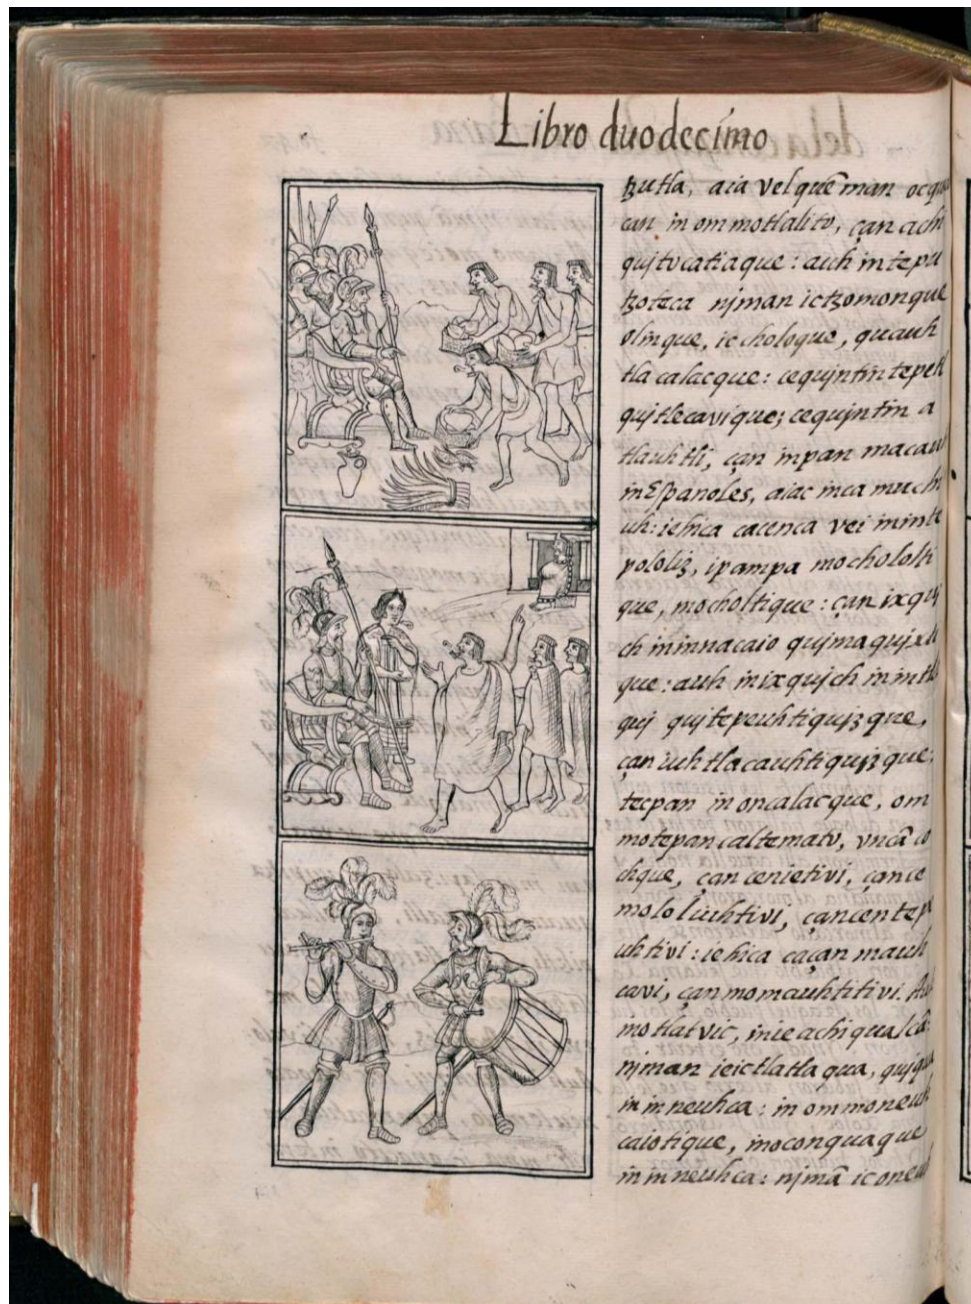 Libro duodecimo
tzutla, aia vel quēman oc qua
can in ommotlalito, çan achi
qujtocatiaque: auh in tepu
tzoteca njman ic tzomonque
olinque, ic choloque, quauh
tla calacque: cequjntin tepetl
qujtlecavique; cequjntin a
tlauhtli, çan inpan macauh
in Españoles, aiac inca muchi
uh: iehica ca cenca vei inin te
pololiz, ipampa mochololti
que, mocholtique: çan ixquj
ch in innacaio qujmaqujxti
que: auh in ixqujch inin tla
quj qujtepeuhtiqujzque,
çan iuh tlacauhtiqujzque;
tecpan in oncalacque, om
motepancaltemato, vncā co
chque, çan cenietivi, çan ce
mololiuhtivi, çan centepe
uhtivi: iehica ca çan mauh
cavi, çan momauhtitivi. Au
motlatvic, in ie achi qualcā:
njman ie ic tlatlaqua, qujqua
in inneuhca: in ommoneuh
caiotique, in oconquaque
in inneuhca: njmā ic oneuh